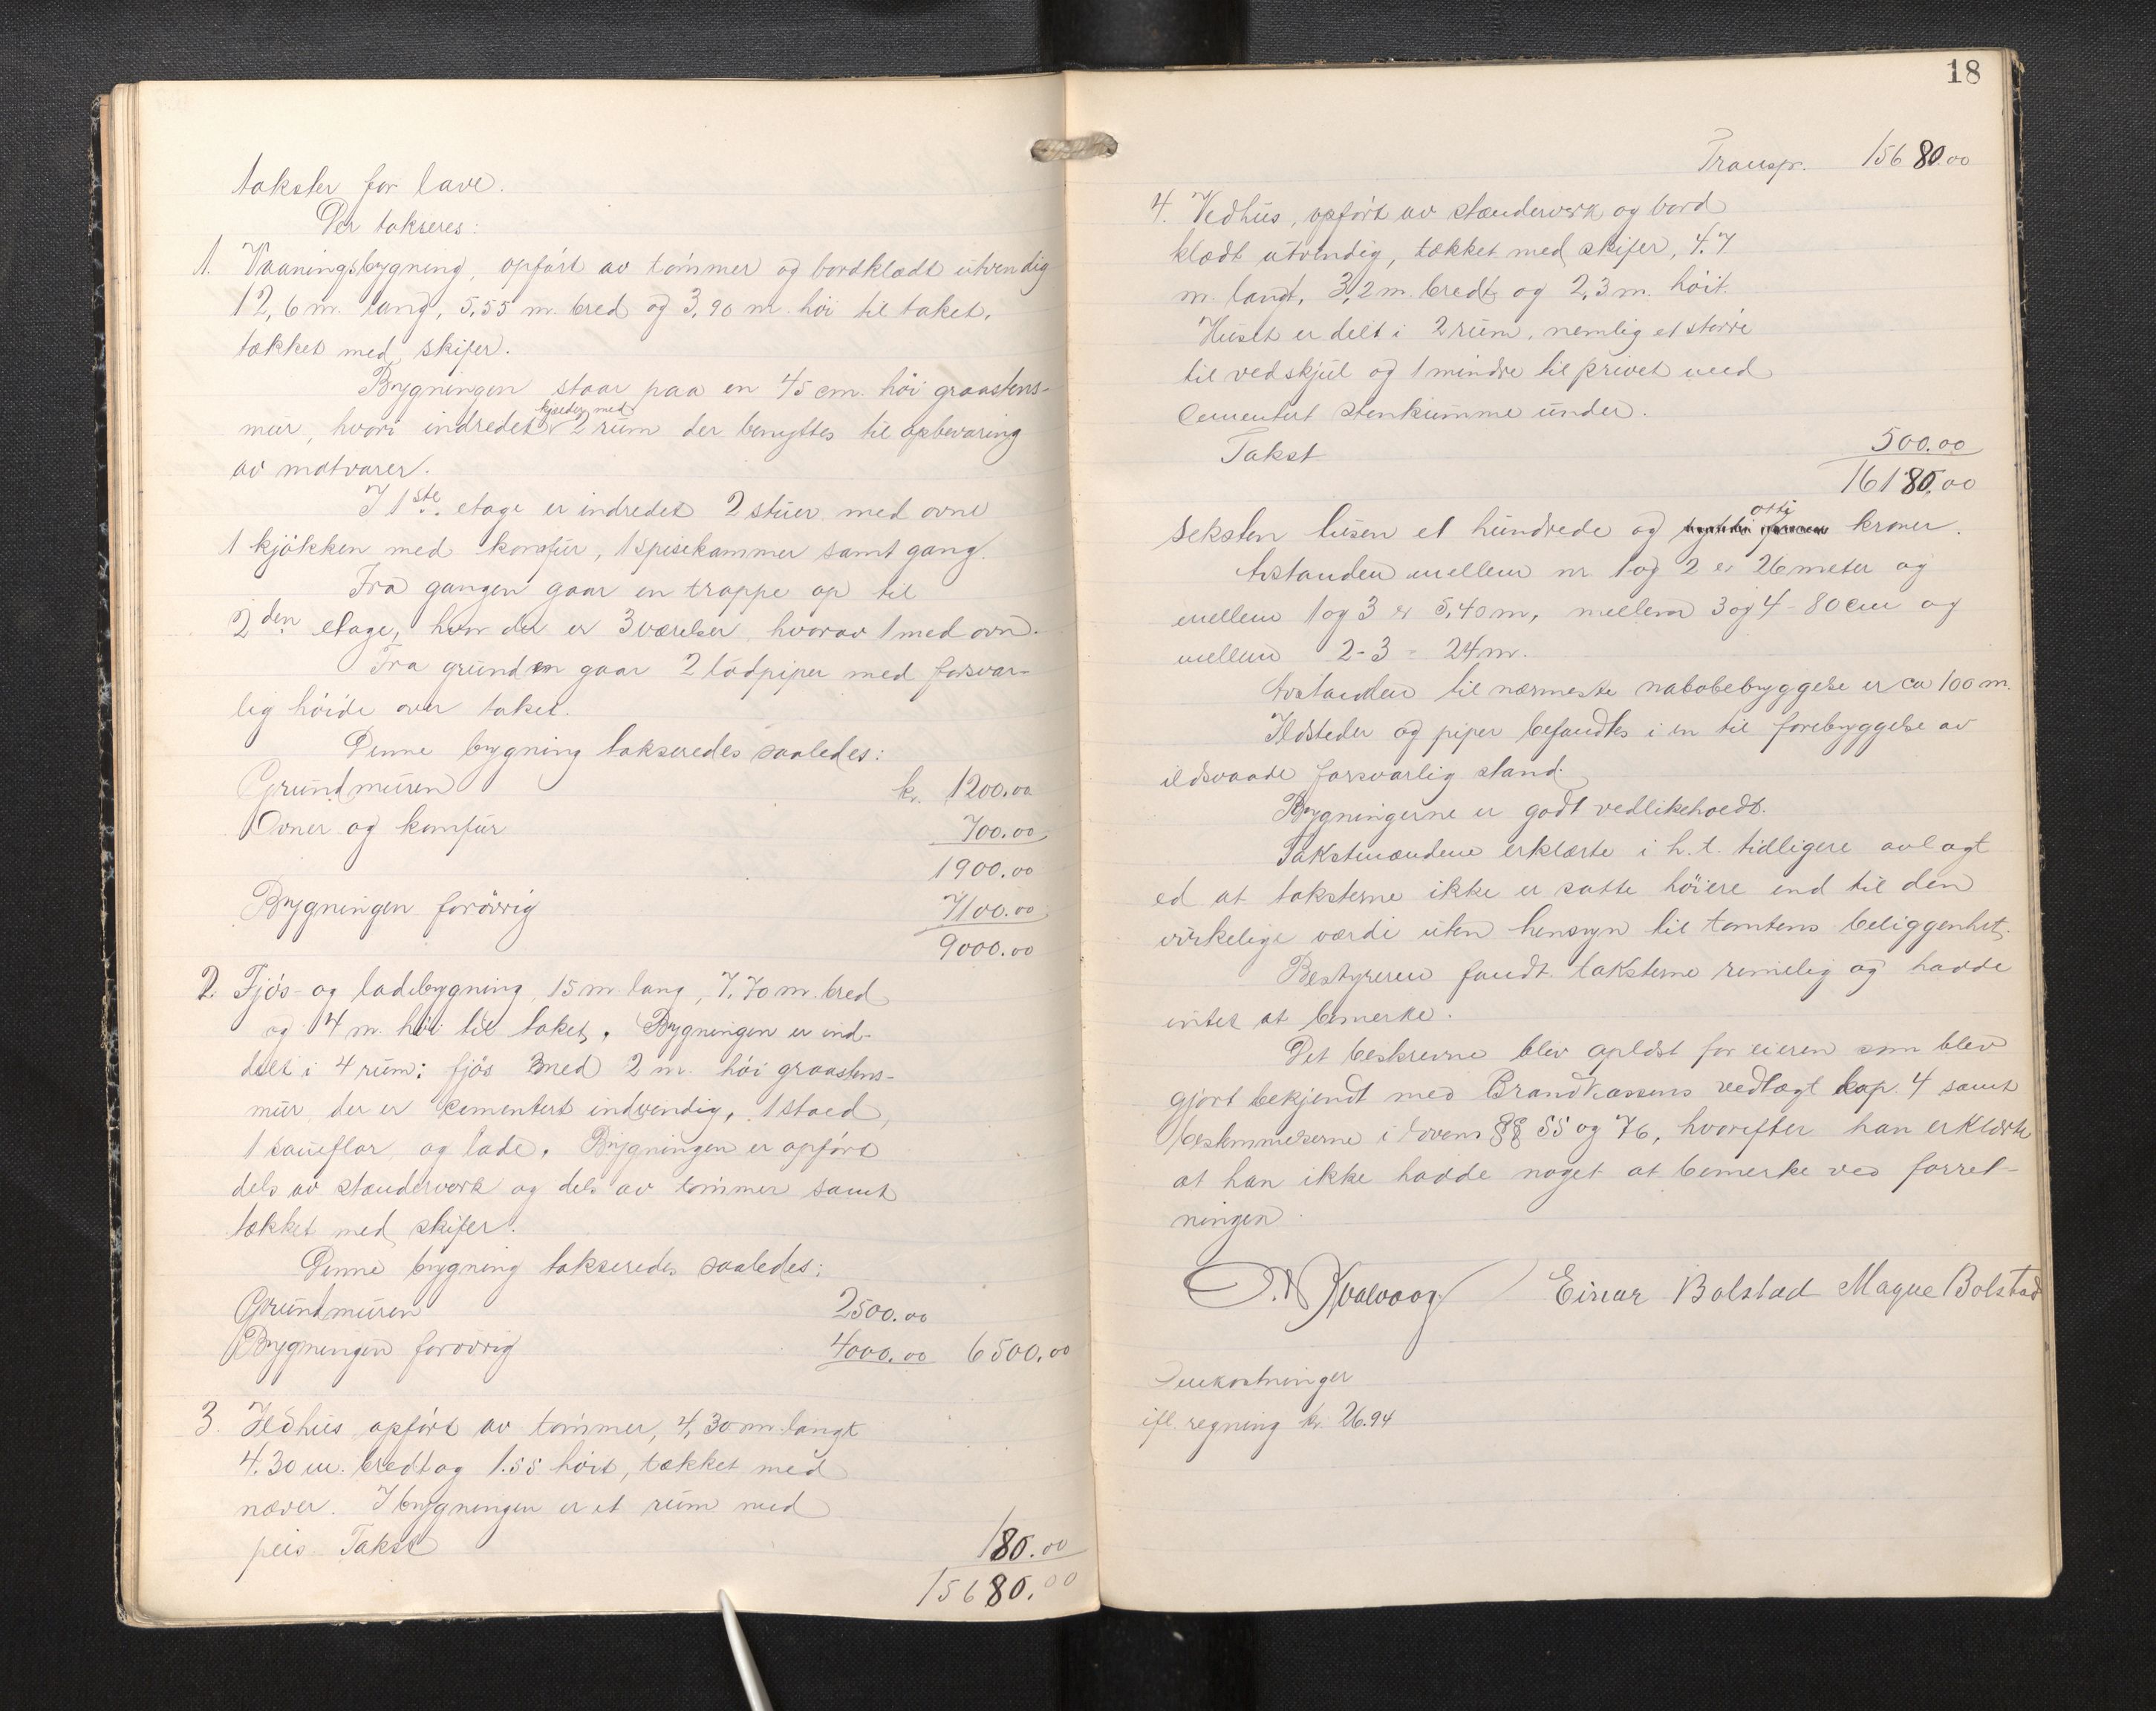 takster for lave.
Der takseres:
1. Vaaningsbygning, opført av tømmer og bordklædt utvendig
12,6 m. lang, 5,55 m. bred og 3,90 m. høi til taket,
tækket med skifer.
Bygningen staar paa en 45 cm. høi graastens-
mur, hvori indredet kjelder med 2 rum der benyttes til opbevaring
av matvarer.
I 1ste etage er indredet 2 stuer med ovne
1 kjøkken med komfur, 1 spisekammer samt gang.
Fra gangen gaar en trappe op til
2den etage, hvor der er 3 værelser hvorav 1 med ovn.
Fra grunden gaar 2 lødpiper med forsvar-
lig høide over taket.
Denne bygning takseredes saaledes:
Grundmuren kr. 1200.00
Ovner og komfur 700.00
1900.00
Bygningen forøvrig 7100.00
9000.00
2. Fjøs- og ladebygning, 15 m. lang, 7.70 m. bred
og 4 m. høi til taket. Bygningen er ind-
delt i 4 rum: fjøs med 2 m. høi graastens-
mur der er cementert indvendig, 1 stald,
1 saueflor og lade. Bygningen er opført
dels av stænderverk og dels av tømmer samt
tækket med skifer.
Denne bygning takseredes saaledes:
Grundmuren 2500.00
Bygningen forøvrig 4000.00 6500.00
3. Ildhus opført av tømmer, 4,30 m. langt
4.30 m. bredt og 1.55 høit, tækket med
næver. I bygningen er et rum med
peis Takst 180.00
15680.00
18
Transp. 15680.00
4. Vedhus, opført av stænderverk og bord
klædt utvendig, tækket med skifer, 4.7
m. langt, 3,2 m. bredt og 2,3 m. høit.
Huset er delt i 2 rum, nemlig et større
til vedskjul og 1 mindre til privet med
cementert stenkumme under.
Takst 500.00
16180.00
seksten tusen et hundrede og otti kroner.
Avstanden mellem nr. 1 og 2 er 26 meter og
mellem 1 og 3 er 5,40 m, mellem 3 og 4 - 80 cm og
mellem 2-3 - 24 m.
Avstanden til nærmeste nabobebyggelse er ca 100 m.
Ildsteder og piper befandtes i en til forebyggelse av
ildsvaade forsvarlig stand.
Bygningerne er godt vedlikeholdt.
Takstmændene erklærte i h. t. tidligere avlagt
ed at taksterne ikke er satte høiere end til den
virkelige værdi uten hensyn til tomtens beliggenhet.
Bestyreren fandt taksterne rimelig og hadde
intet at bemerke.
Det beskrevne blev oplæst for eieren som blev
gjort bekjendt med Brandkassens vedtægt kap. 4 samt
bestemmelserne i lovens §§ 55 og 76, hvorefter han erklærte
at han ikke hadde noget at bemerke ved forret-
ningen.
Kvalvaag Einar Bolstad Magne Bolstad
Omkostninger
ifl. regning kr. 26.94